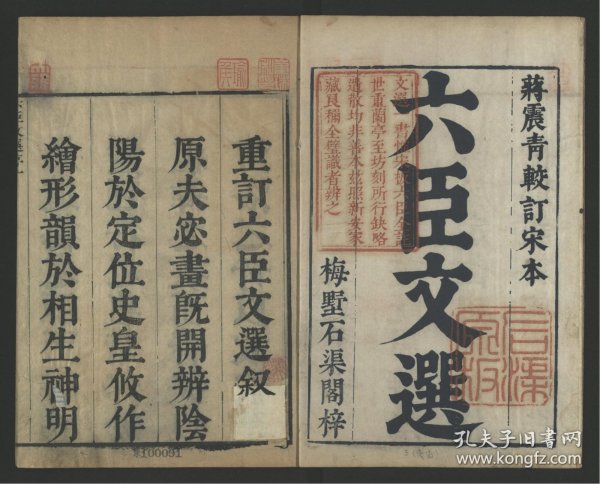 蔣震青較訂宋本
六臣文選
世重蘭亭至坊刻所行缺略
遺散均非善本茲照新安家
藏良稱全璧識者辨之
梅墅石渠閣梓
重訂六臣文選叙
原夫宓畫旣開辨陰
陽於定位史皇攸作
繪形韻於相生神明
100091
孔夫子旧书网
www.kongfz.com